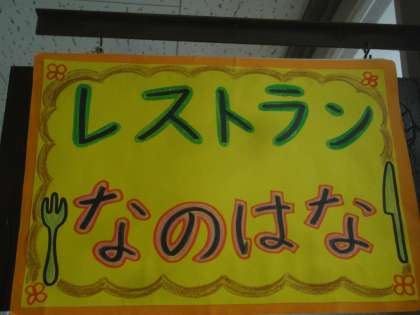 レストラン
なのはな